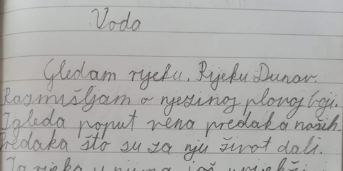 Voda
Gledam rijeku. Rijeku Dunav.
Razmišljam o njezinoj plavoj boji.
Izgleda poput vena predaka naših.
Predaka što su za nju život dali.
Ta rijeka u njima još uvijek